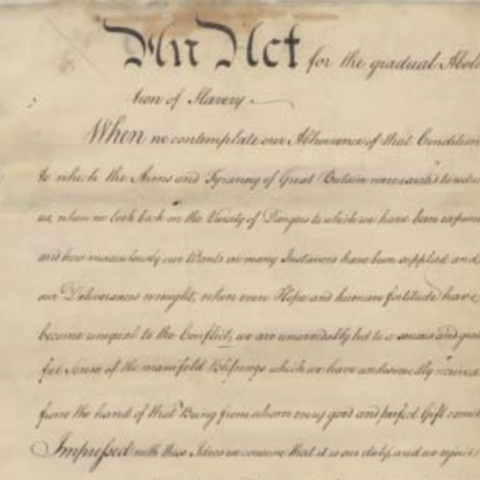 An Act for the gradual Aboli
tion of Slavery
When we contemplate our Abhorance of that Condition
to which the Arms and Tyranny of Great Britain were exerted to reduce
us, when we look back on the Variety of Dangers to which we have been exposed
and how miraculously our Wants in many Instances have been supplied and
our Deliverances wrought, when even Hope and human fortitude have
become unequal to the Conflict, we are unavoidably led to a serious and grate
ful sense of the manifold Blessings which we have undeservedly received
from the hand of that Being from whom every good and perfect Gift cometh
Impressed with these Ideas we conceive that it is our duty, and we rejoice